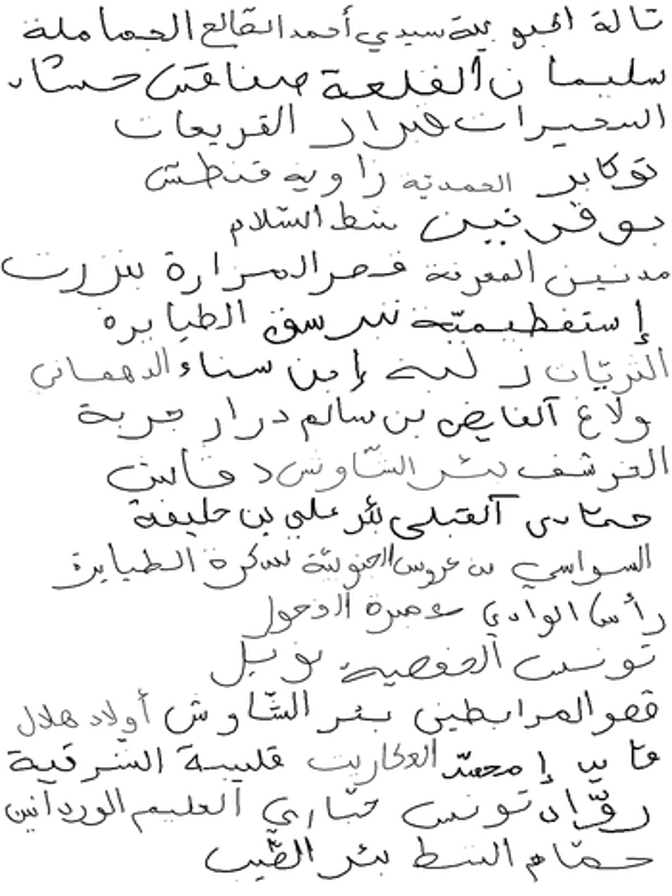 تالة الجنوبية سيدي أحمد القالع الجماملة
سليمان القلعة صفاقس حشاد
السعيرات ضرار القريعات
توكابر الحمدية زاوية قنطش
بوقرنين شط السلام
مدنين المعرفة قصر المزارة بنزرت
إستفطيميّة تبرسق الطبايرة
الثريّات زلبة إبن سناء الدهماني
ولاغ الفايض بن سالم درار جربة
الخرشف بئر الشّاوش د قابس
حمّاص القبلي بئر علي بن خليفة
السواسي بن عروس الجنوبيّة سكرة الطبايرة
رأس الوادي عميرة الفحول
تونس الحفصية نوبل
قصور المرابطين بئر الشّاوش أولاد هلال
العكاريت قليبية الشرقية
روّاد تونس خبّاري العليم الوردانين
حمّام الشط بئر الطّيب